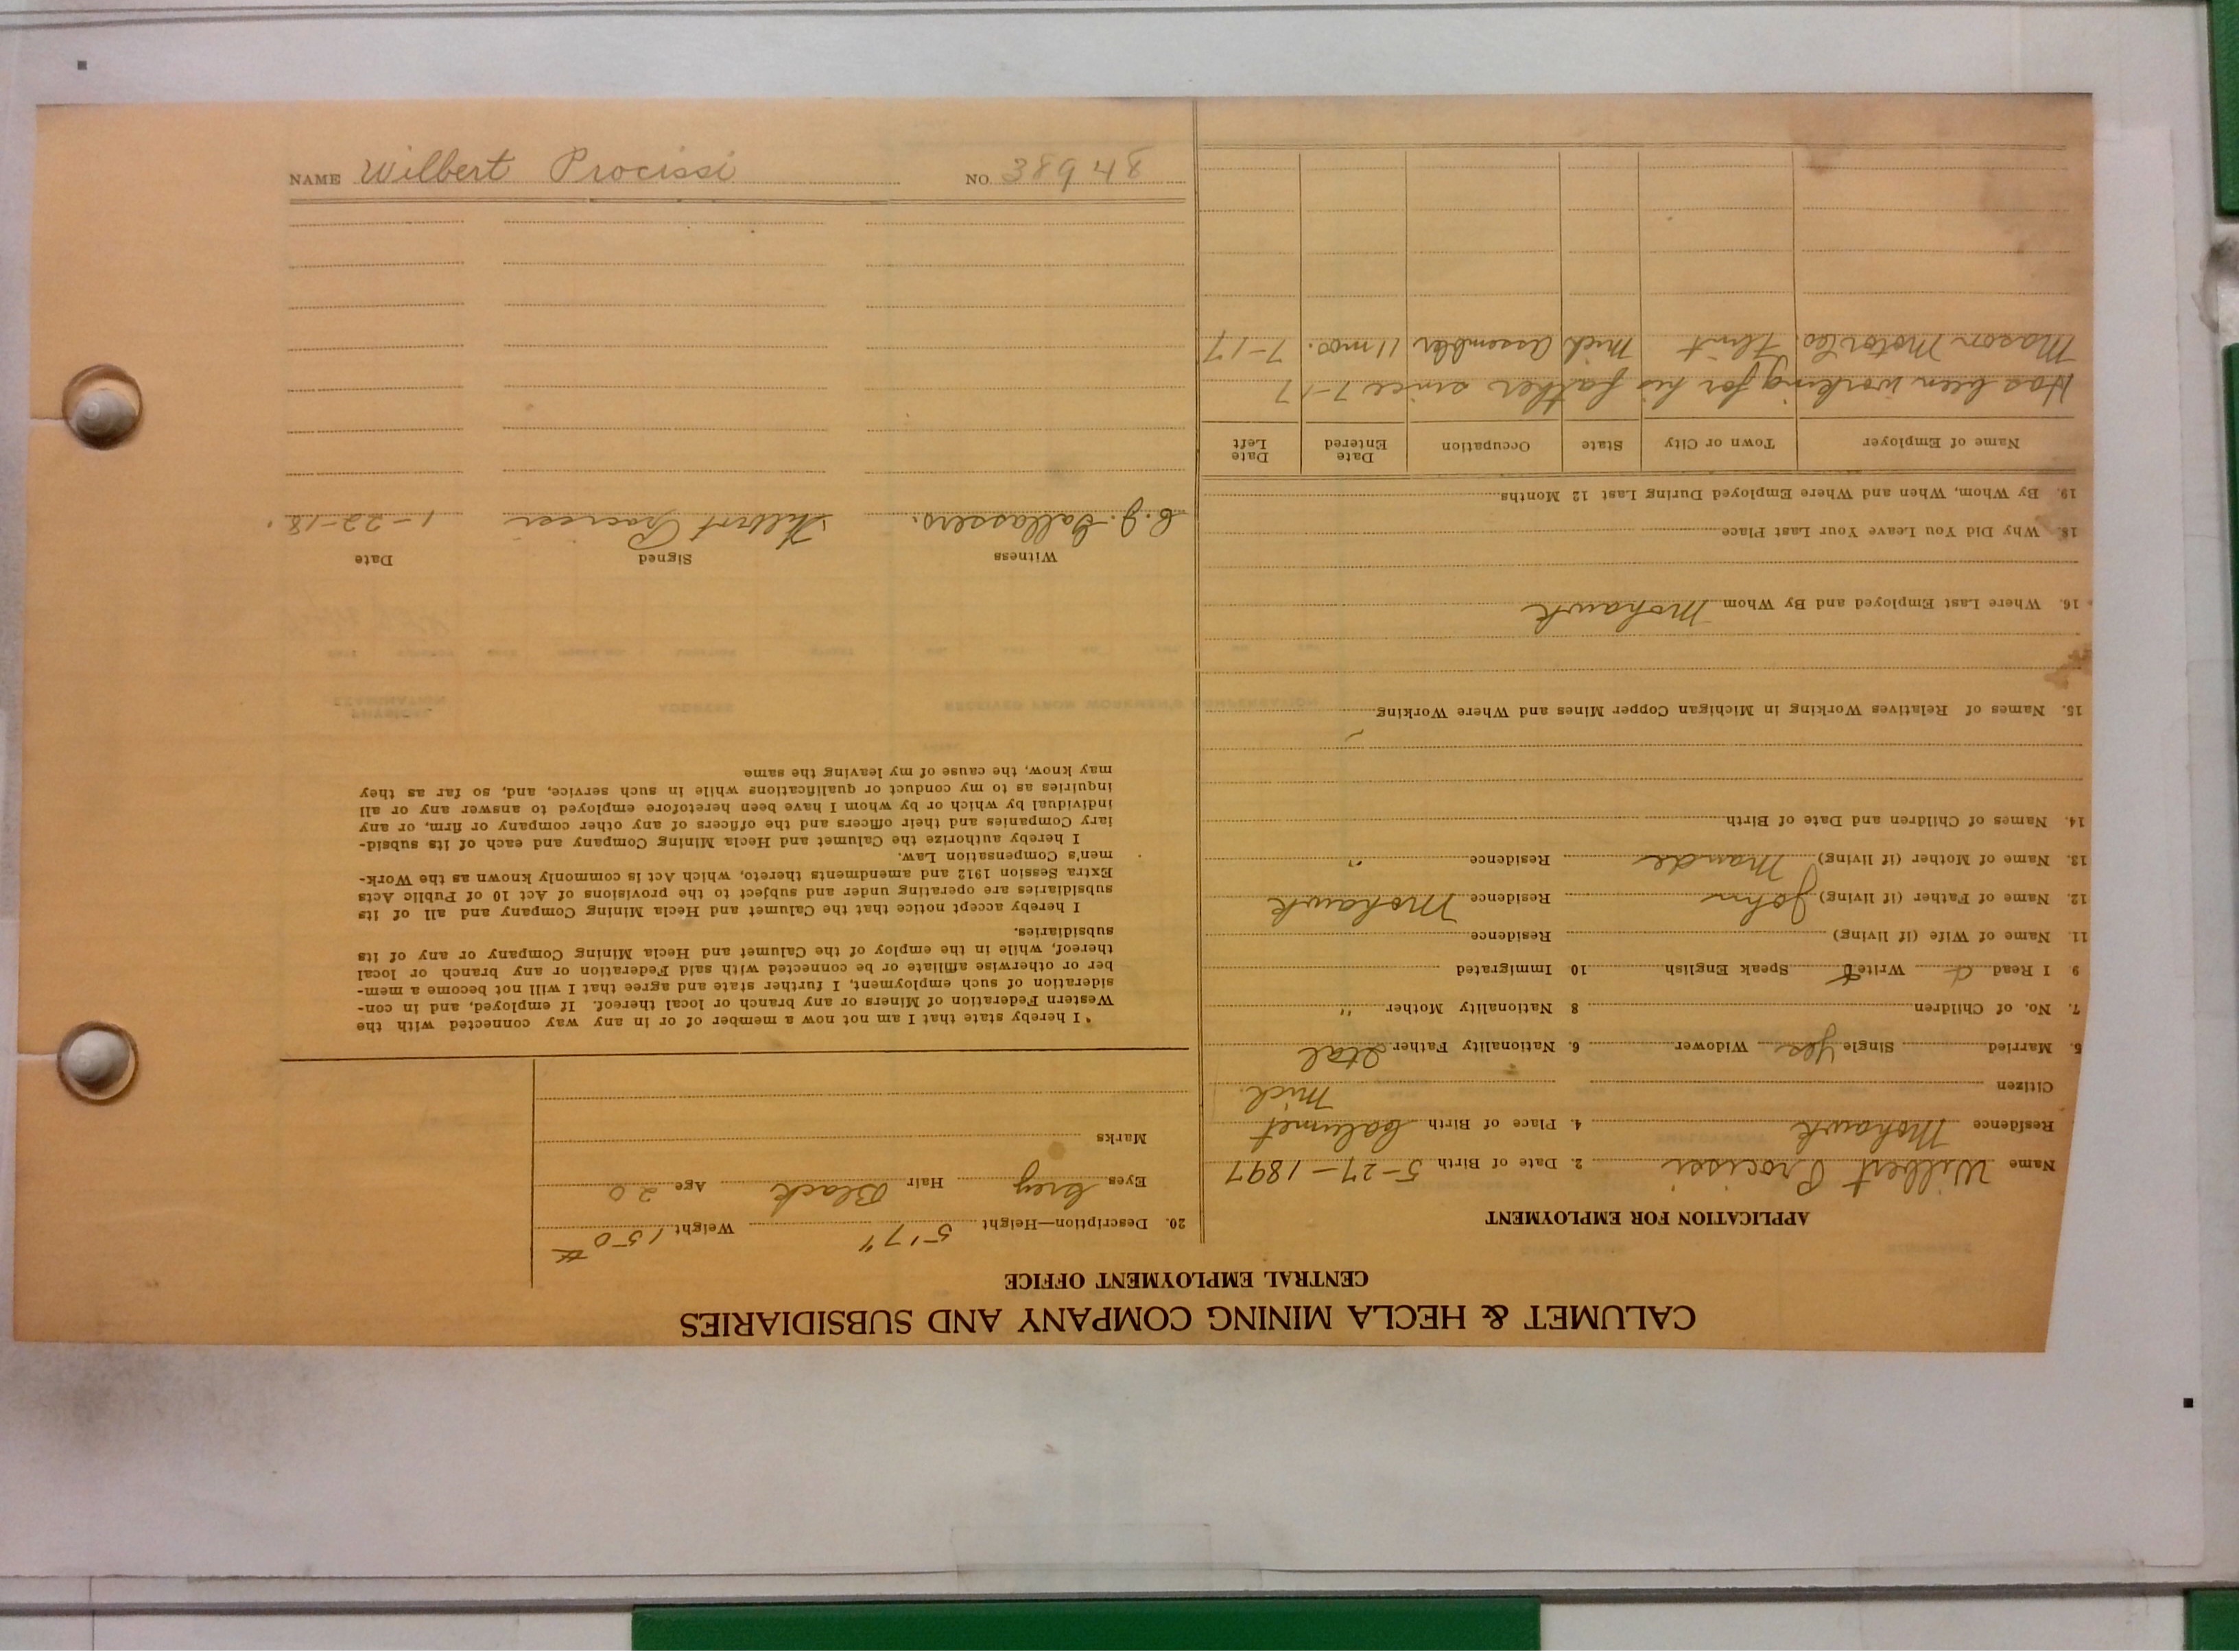 CALUMET & HECLA MINING COMPANY AND SUBSIDIARIES
CENTRAL EMPLOYMENT OFFICE
APPLICATION FOR EMPLOYMENT
Name Wilbert Procissi 2. Date of Birth 5-27-1897
Residence Mohawk 4. Place of Birth Calumet
Mich.
Citizen
5. Married Single Yes Widower 6. Nationality Father Ital
7. No. of Children 8 Nationality Mother "
9. I Read Write Speak English 10 Immigrated
11. Name of Wife (if living) Residence
12. Name of Father (if living) John Residence Mohawk
13. Name of Mother (if living) Residence "
14. Names of Children and Date of Birth
15. Names of Relatives Working in Michigan Copper Mines and Where Working
16. Where Last Employed and By Whom Mohawk
18. Why Did You Leave Your Last Place
19. By Whom, When and Where Employed During Last 12 Months
Name of Employer Town or City State Occupation Date Entered Date Left
Has been working for his father since 7-17
Mason Motor Co Flint Mich Assembler 11 mos. 7-17
20. Description—Height 5'7" Weight 150#
Eyes Grey Hair Black Age 20
Marks
"I hereby state that I am not now a member of or in any way connected with the
Western Federation of Miners or any branch or local thereof. If employed, and in con-
sideration of such employment, I further state and agree that I will not become a mem-
ber or otherwise affiliate or be connected with said Federation or any branch or local
thereof, while in the employ of the Calumet and Hecla Mining Company or any of its
subsidiaries.
I hereby accept notice that the Calumet and Hecla Mining Company and all of its
subsidiaries are operating under and subject to the provisions of Act 10 of Public Acts
Extra Session 1912 and amendments thereto, which Act is commonly known as the Work-
men's Compensation Law.
I hereby authorize the Calumet and Hecla Mining Company and each of its subsid-
iary Companies and their officers and the officers of any other company or firm, or any
individual by which or by whom I have been heretofore employed to answer any or all
inquiries as to my conduct or qualifications while in such service, and, so far as they
may know, the cause of my leaving the same
Witness Signed Date
Wilbert Procissi 1-22-18.
NAME Wilbert Procissi NO. 38948